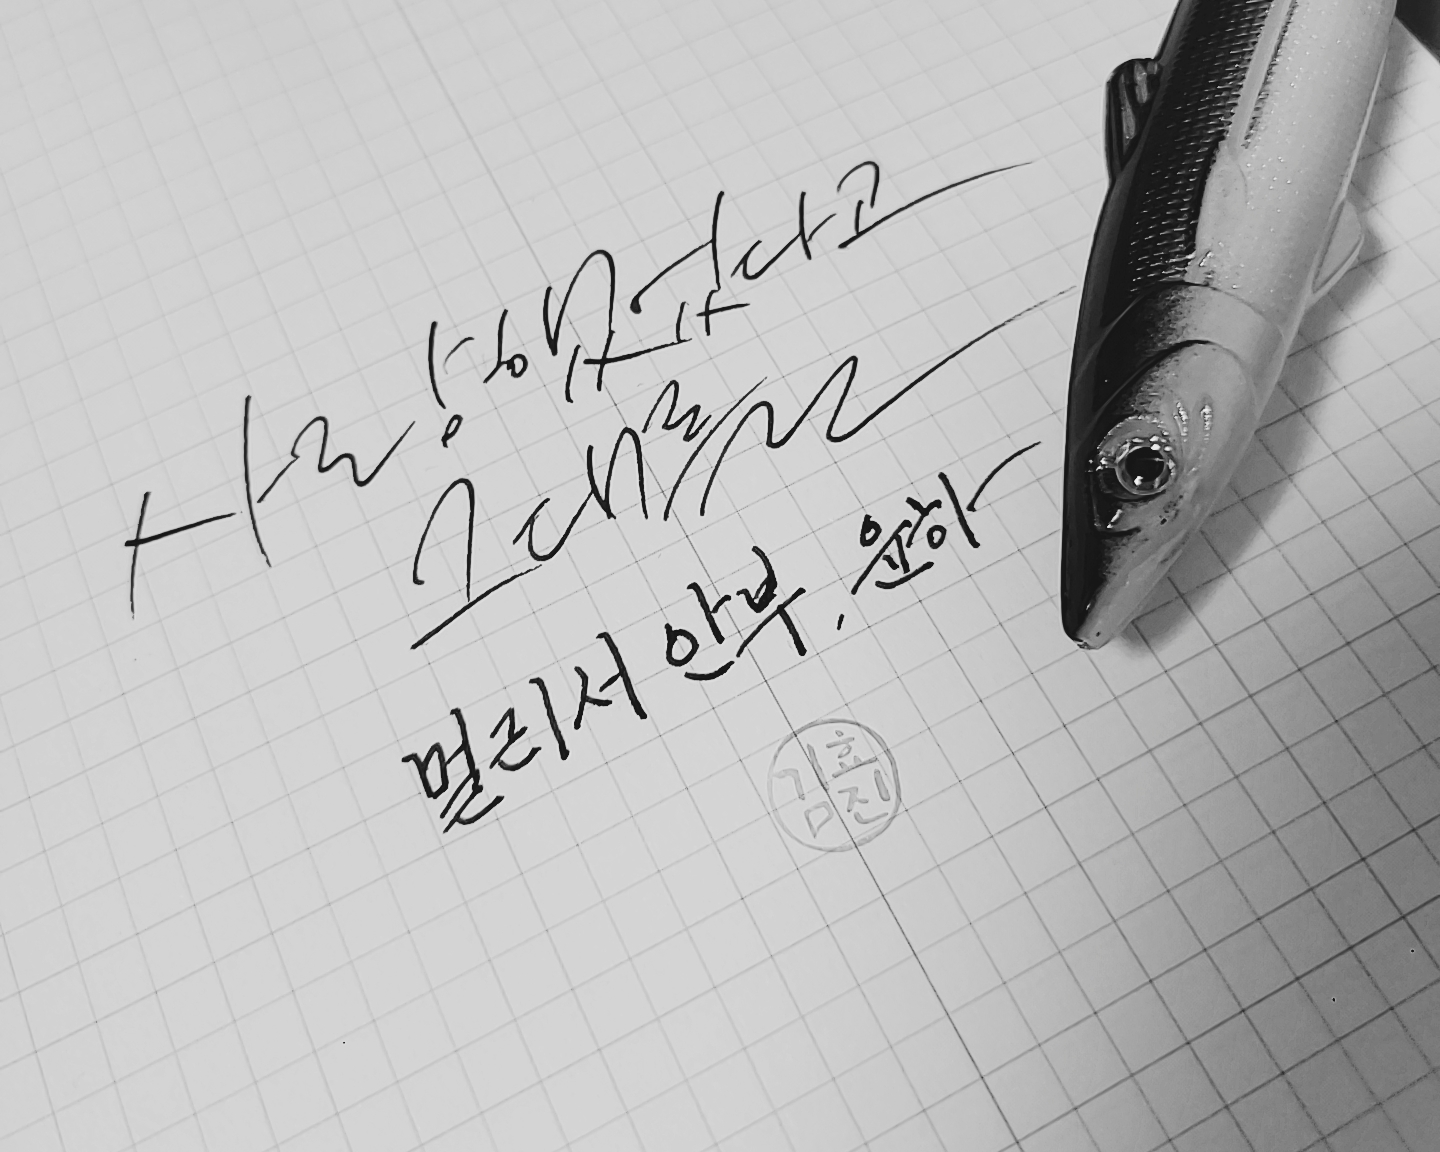 사랑했었다고
그대를
멀리서 안부, 윤하
김효진